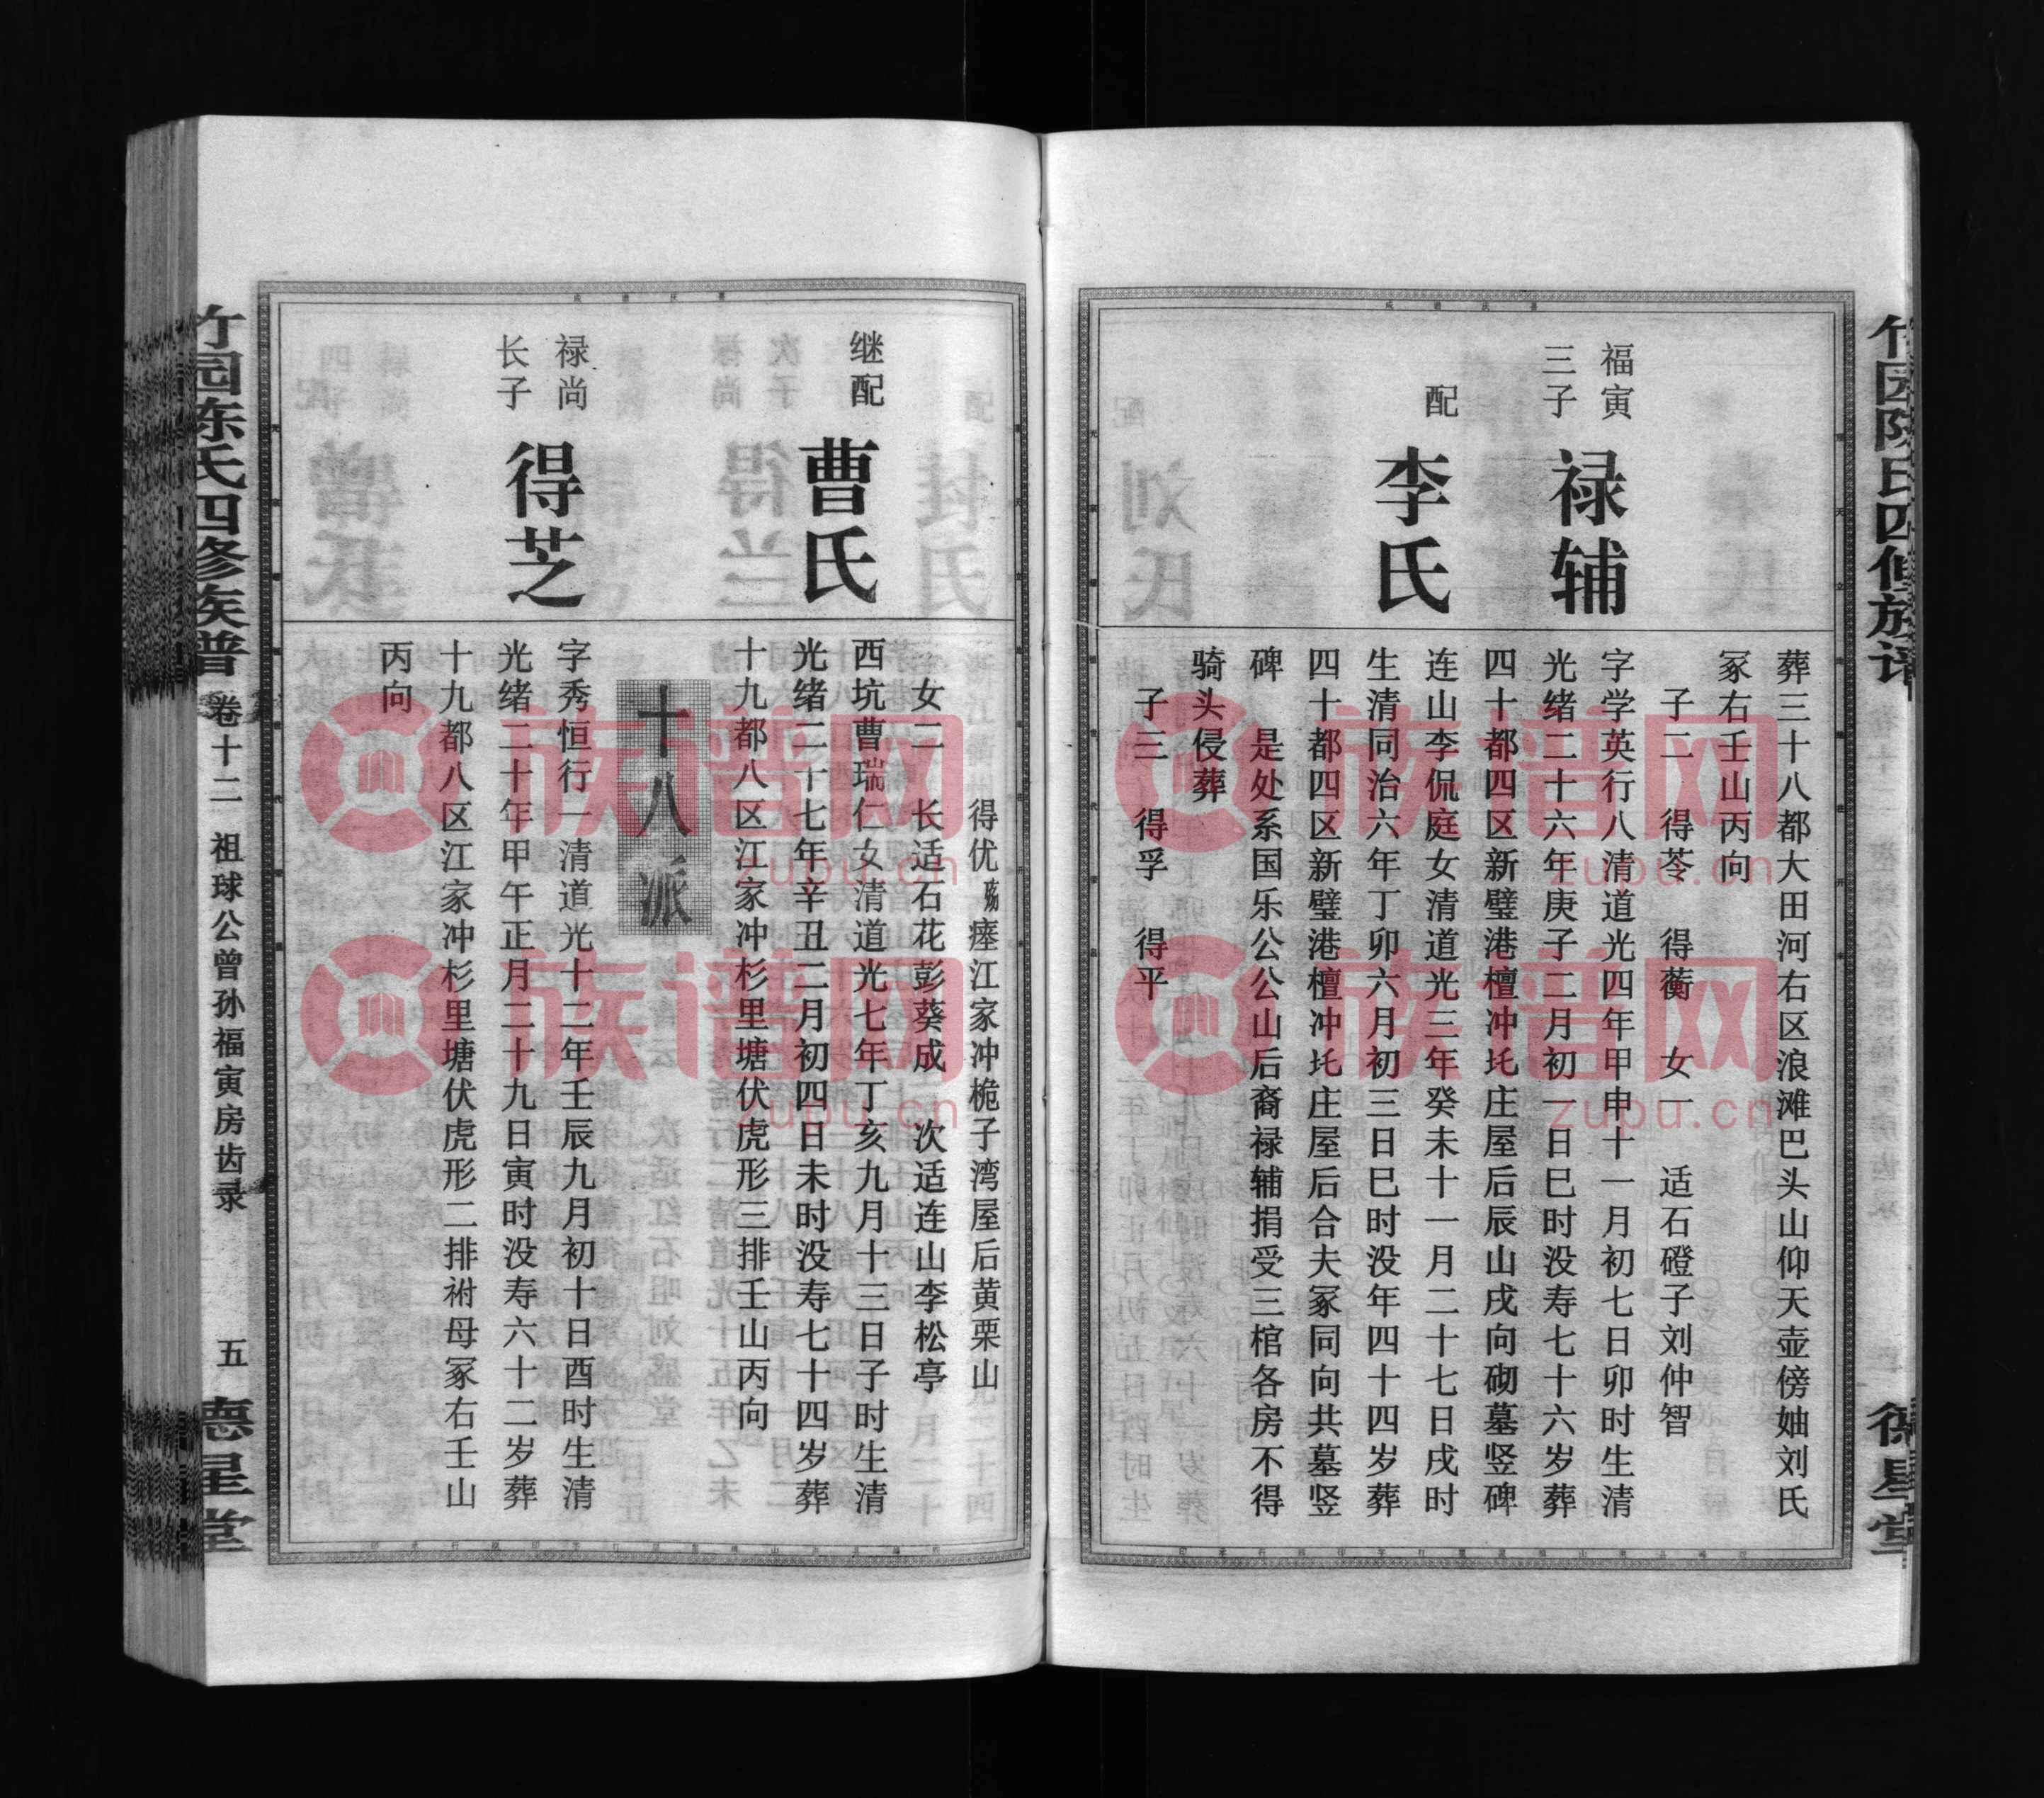 葬三十八都大田河右区浪滩巴头山仰天壶傍妯刘氏
冢右壬山丙向
子二 得苓 得蘅 女一 适石磴子刘仲智
福寅
三子
禄辅
字学英行八清道光四年甲申十一月初七日卯时生清
光绪二十六年庚子二月初一日巳时没寿七十六岁葬
四十都四区新璧港檀冲圫庄屋后辰山戌向砌墓竖碑
配
李氏
连山李侃庭女清道光三年癸未十一月二十七日戌时
生清同治六年丁卯六月初三日巳时没年四十四岁葬
四十都四区新璧港檀冲圫庄屋后合夫冢同向共墓竖
碑 是处系国乐公公山后裔禄辅捐受三棺各房不得
骑头侵葬
子三 得孚 得平
得优 殇瘗江家冲桅子湾屋后黄栗山
女二 长适石花彭葵成 次适连山李松亭
继配
曹氏
西坑曹瑞仁女清道光七年丁亥九月十三日子时生清
光绪二十七年辛丑二月初四日未时没寿七十四岁葬
十九都八区江家冲杉里塘伏虎形三排壬山丙向
十八派
禄尚
长子
得芝
字秀恒行一清道光十二年壬辰九月初十日酉时生清
光绪二十年甲午正月二十九日寅时没寿六十二岁葬
十九都八区江家冲杉里塘伏虎形二排祔母冢右壬山
丙向
竹园陈氏四修族谱 卷十二 祖球公曾孙福寅房齿录 五 德星堂
族谱网
zupu.cn
族谱网
zupu.cn
族谱网
zupu.cn
族谱网
zupu.cn